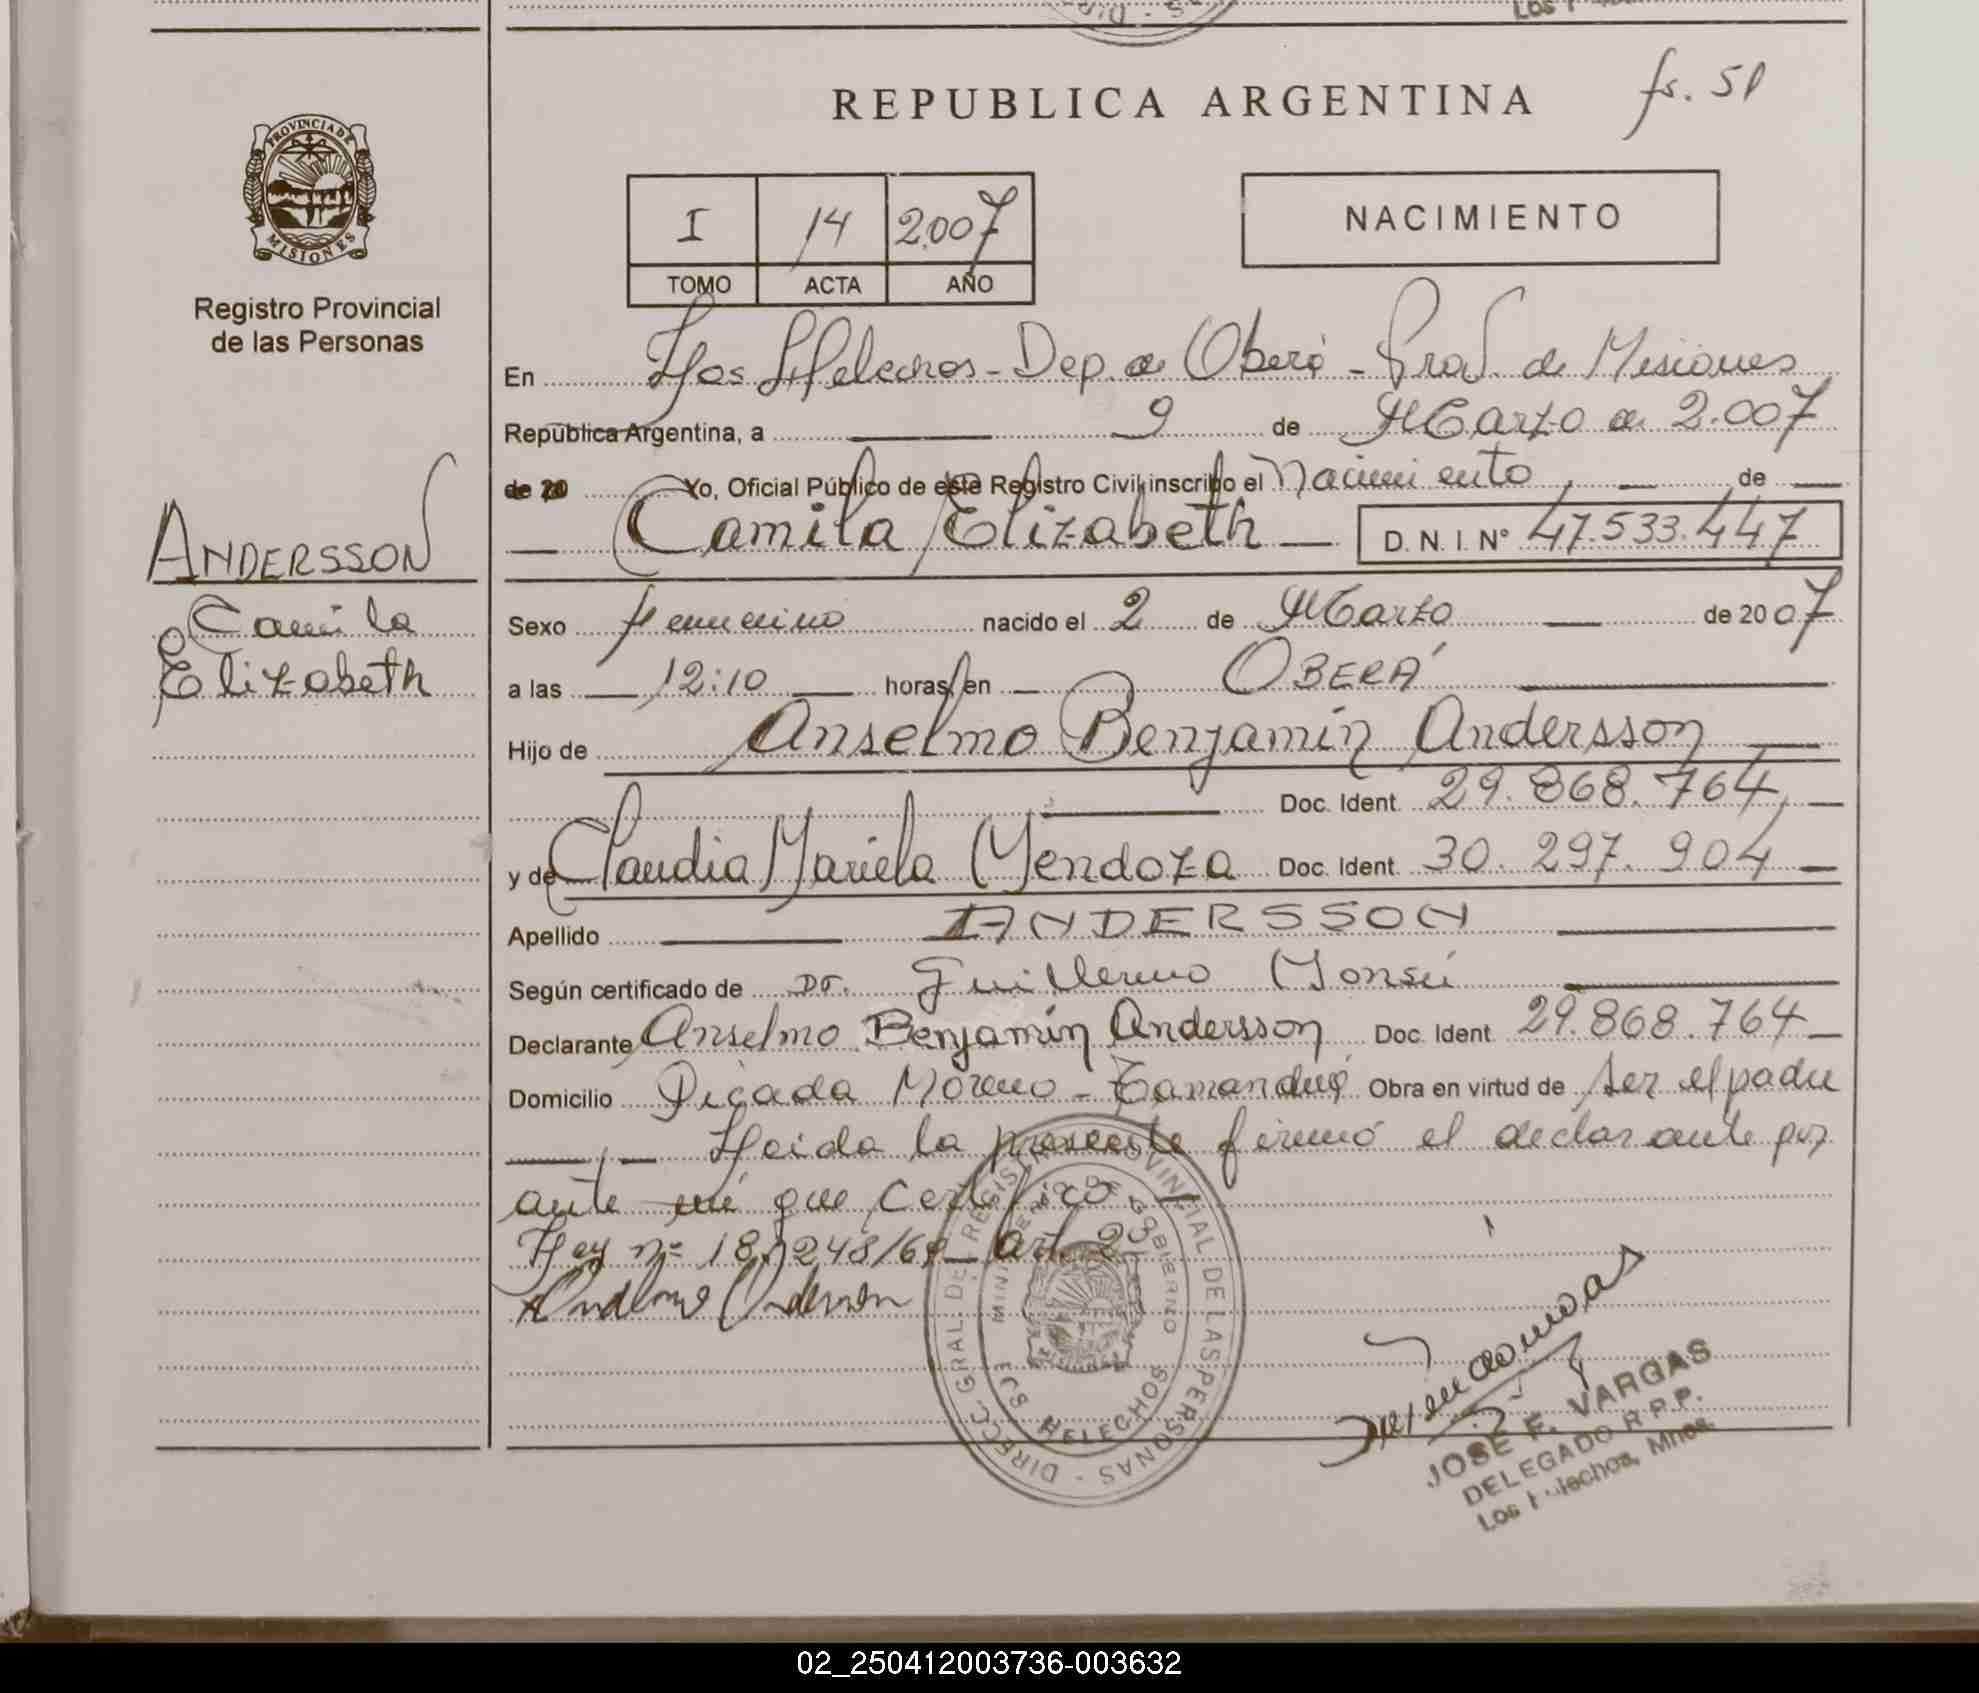 REPUBLICA ARGENTINA
fs. 51
PROVINCIA DE MISIONES
Registro Provincial
de las Personas
I 14 2.007
TOMO ACTA AÑO
NACIMIENTO
En Los Helechos - Dep. de Oberá - Prov. de Misiones
República Argentina, a 9 de Marzo de 2.007
de 20 Yo, Oficial Público de este Registro Civil inscribo el Nacimiento de
Camila Elizabeth D.N.I. Nº 47.533.447
ANDERSSON
Camila
Elizabeth
Sexo Femenino nacido el 2 de Marzo de 2007
a las 12:10 horas en OBERÁ
Hijo de Anselmo Benjamín Andersson
Doc. Ident. 29.868.764
y de Claudia Mariela Mendoza Doc. Ident. 30.297.904
Apellido ANDERSSON
Según certificado de Dr. Guillermo Monsú
Declarante Anselmo Benjamín Andersson Doc. Ident. 29.868.764
Domicilio Picada Moreno - Tamanduá Obra en virtud de ser el padre
Leida la presente firmó el declarante por
ante mí que certifico
Ley nº 18.248/69 - Art. 2º
DIRECC. GRAL. DEL REGISTRO PROVINCIAL DE LAS PERSONAS
MINISTERIO DE GOBIERNO
HELECHOS
JOSE F. VARGAS
DELEGADO R.P.P.
Los Helechos, Mnes.
02_250412003736-003632